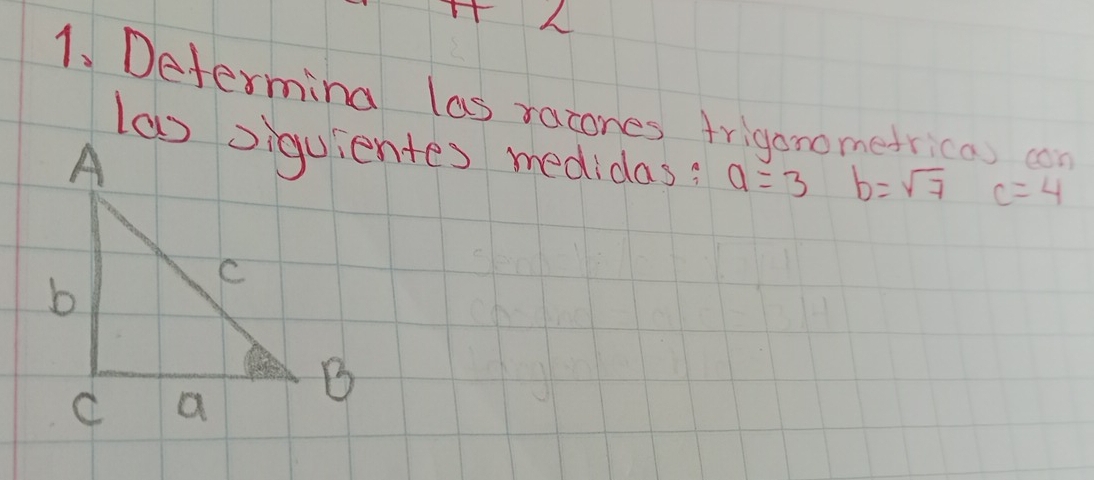 # 2
1. Determina las razones trigonometricas con
las siguientes medidas: a=3 b=√7 c=4
A
c
b
B
C a